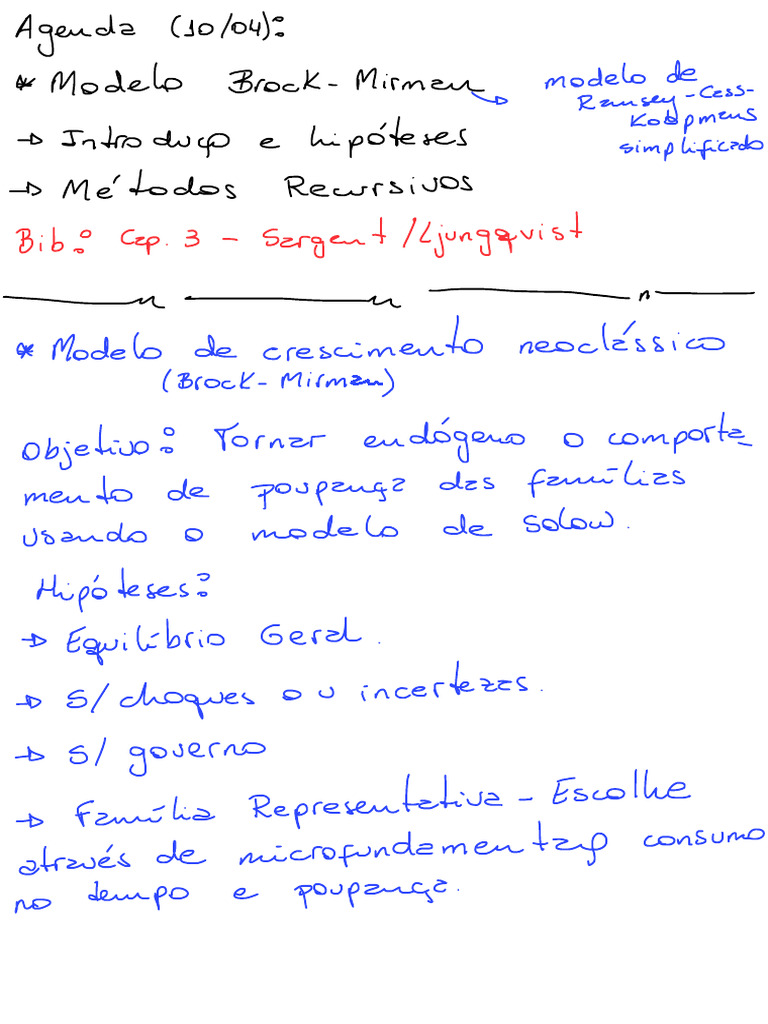 Agenda (10/04):
* Modelo Brock-Mirman → modelo de
Ramsey-Cass-
Koopmans
simplificado
→ Introdução e hipóteses
→ Métodos Recursivos
Bib: Cap. 3 - Sargent/Ljungqvist
* Modelo de crescimento neoclássico
(Brock-Mirman)
Objetivo: Tornar endógeno o comporta
mento de poupança das famílias
usando o modelo de Solow.
Hipóteses:
→ Equilíbrio Geral.
→ S/ choques ou incertezas.
→ S/ governo
→ Família Representativa - Escolhe
através de microfundamentação consumo
no tempo e poupança.